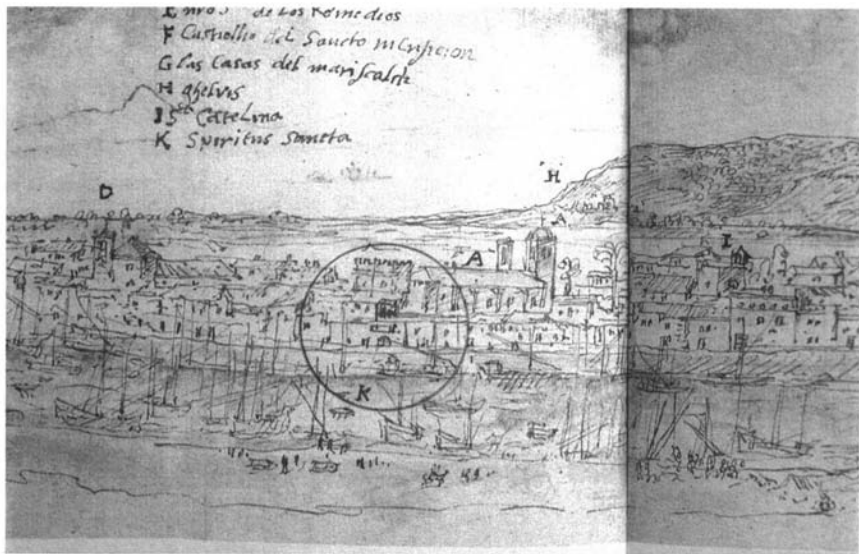 de Los Remedios
F Castillo del Sancto
G las Casas del mariscal
H ghelves
I S^ta Catelina
K Spiritus Sancta
D
H
A
A
I
K